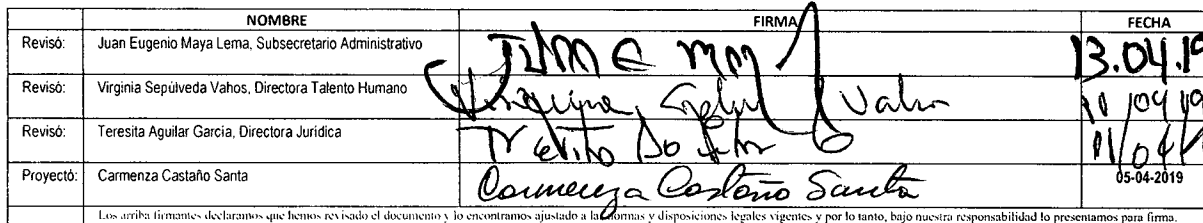 NOMBRE FIRMA FECHA
Revisó: Juan Eugenio Maya Lema, Subsecretario Administrativo 13.04.19
Revisó: Virginia Sepúlveda Vahos, Directora Talento Humano
Revisó: Teresita Aguilar García, Directora Jurídica
Proyectó: Carmenza Castaño Santa Carmenza Castaño Santa 05-04-2019
Los arriba firmantes declaramos que hemos revisado el documento y lo encontramos ajustado a las normas y disposiciones legales vigentes y por lo tanto, bajo nuestra responsabilidad lo presentamos para firma.